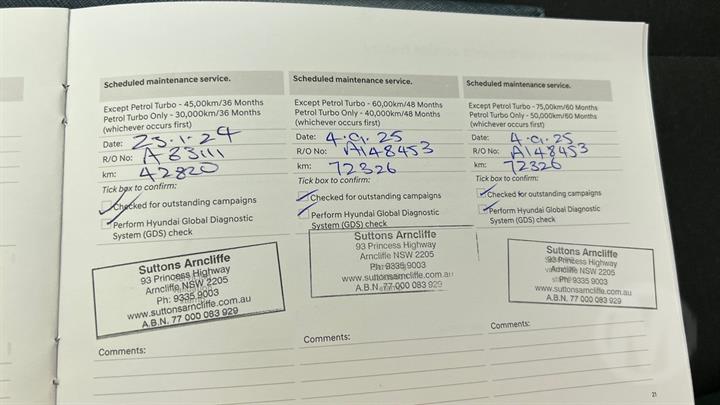 Scheduled maintenance service.
Except Petrol Turbo - 45,00km/36 Months
Petrol Turbo Only - 30,000km/36 Months
(whichever occurs first)
Date: 25.1.24
R/O No: A83111
km: 42820
Tick box to confirm:
Checked for outstanding campaigns
Perform Hyundai Global Diagnostic
System (GDS) check
Suttons Arncliffe
93 Princess Highway
Arncliffe NSW 2205
Ph: 9335 9003
www.suttonsarncliffe.com.au
A.B.N. 77 000 083 929
Comments:
Scheduled maintenance service.
Except Petrol Turbo - 60,00km/48 Months
Petrol Turbo Only - 40,000km/48 Months
(whichever occurs first)
Date: 4.9.25
R/O No: A148453
km: 72326
Tick box to confirm:
Checked for outstanding campaigns
Perform Hyundai Global Diagnostic
System (GDS) check
Suttons Arncliffe
93 Princess Highway
Arncliffe NSW 2205
Ph: 9335 9003
www.suttonsarncliffe.com.au
A.B.N. 77 000 083 929
Comments:
Scheduled maintenance service.
Except Petrol Turbo - 75,00km/60 Months
Petrol Turbo Only - 50,000km/60 Months
(whichever occurs first)
Date: 4.9.25
R/O No: A148453
km: 72326
Tick box to confirm:
Checked for outstanding campaigns
Perform Hyundai Global Diagnostic
System (GDS) check
Suttons Arncliffe
93 Princess Highway
Arncliffe NSW 2205
Ph: 9335 9003
www.suttonsarncliffe.com.au
A.B.N. 77 000 083 929
Comments:
21